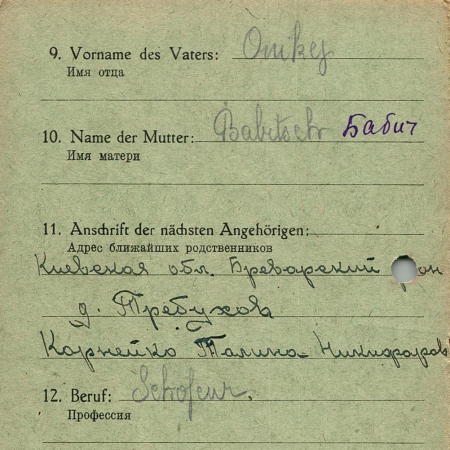 9. Vorname des Vaters: Onikej
Имя отца
10. Name der Mutter: Babitsch Бабич
Имя матери
11. Anschrift der nächsten Angehörigen:
Адрес ближайших родственников
Киевская обл. Бреварский рон
д. Требухов
Корнейко Талина Никифаров
12. Beruf: Schofeur.
Профессия